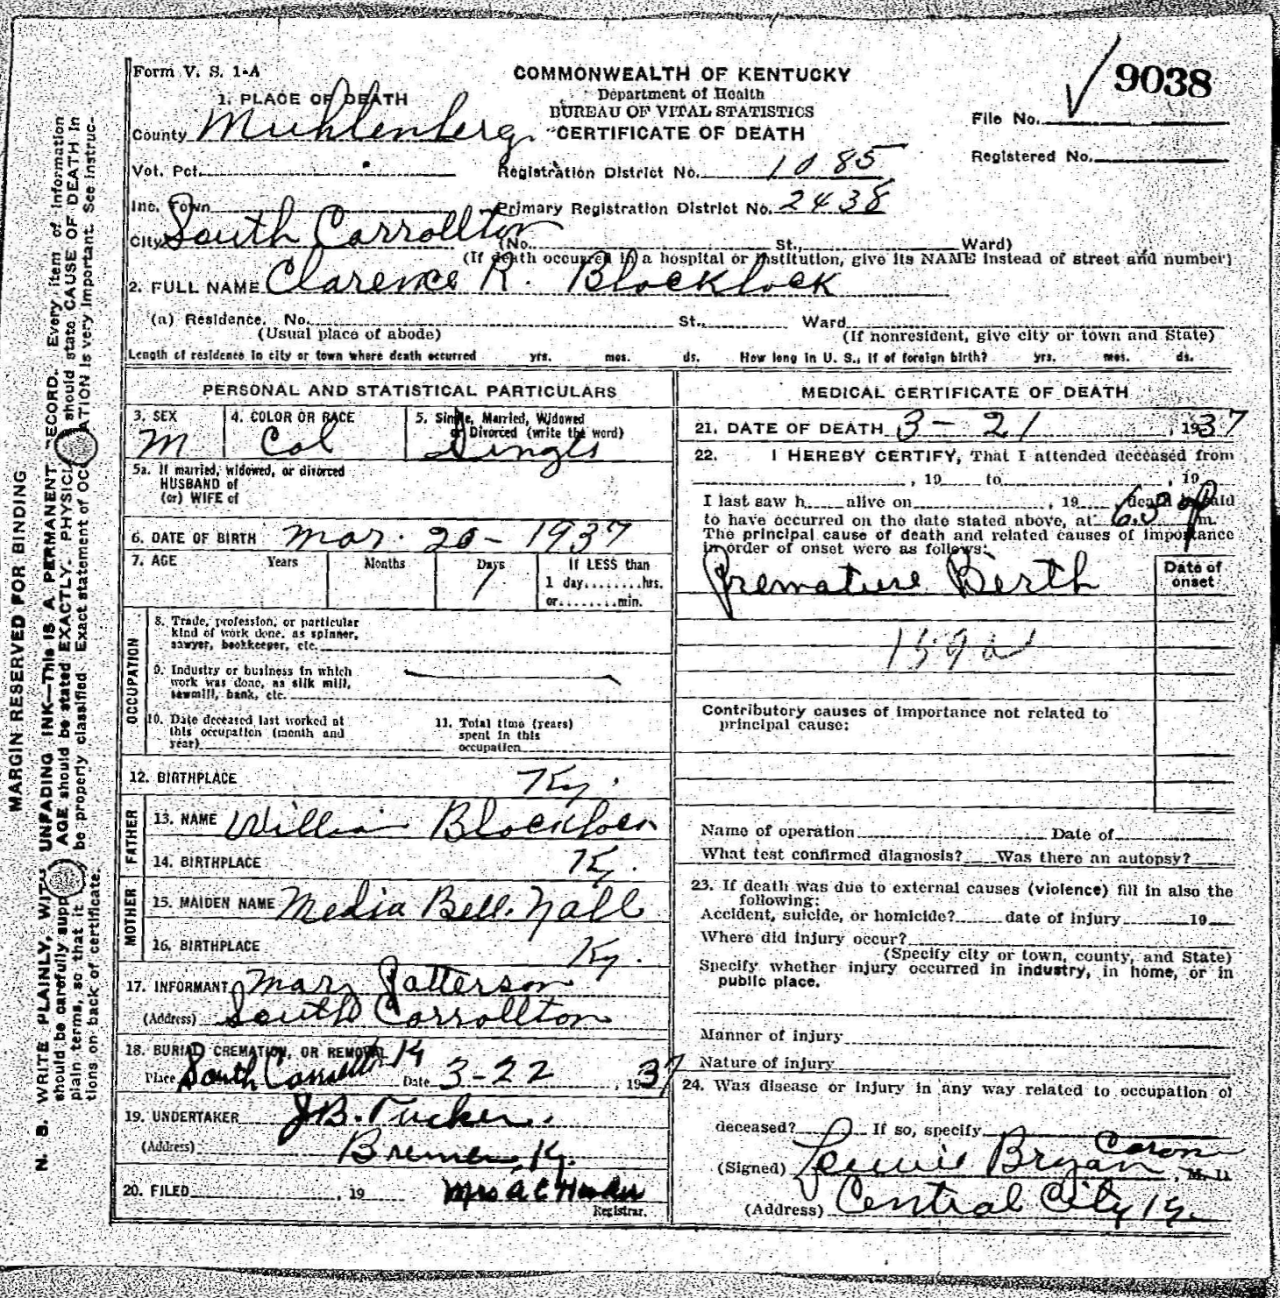 Form V. S. 1-A
COMMONWEALTH OF KENTUCKY
Department of Health
BUREAU OF VITAL STATISTICS
CERTIFICATE OF DEATH
9038
File No.
Registered No.
1. PLACE OF DEATH
County Muhlenberg
Vot. Pct.
Registration District No. 1085
Inc. Town
Primary Registration District No. 2438
City South Carrollton
(No. St., Ward)
(If death occurred in a hospital or institution, give its NAME instead of street and number)
2. FULL NAME Clarence R. Blocklock
(a) Residence. No. St., Ward
(Usual place of abode) (If nonresident, give city or town and State)
Length of residence in city or town where death occurred yrs. mos. ds. How long in U. S., if of foreign birth? yrs. mos. ds.
PERSONAL AND STATISTICAL PARTICULARS
3. SEX M
4. COLOR OR RACE Col
5. Single, Married, Widowed
or Divorced (write the word)
Single
5a. If married, widowed, or divorced
HUSBAND of
(or) WIFE of
6. DATE OF BIRTH Mar. 20 - 1937
7. AGE Years Months Days If LESS than
1 1 day........hrs.
or........min.
OCCUPATION
8. Trade, profession, or particular
kind of work done, as spinner,
sawyer, bookkeeper, etc.
9. Industry or business in which
work was done, as silk mill,
sawmill, bank, etc.
10. Date deceased last worked at
this occupation (month and
year)
11. Total time (years)
spent in this
occupation
12. BIRTHPLACE Ky.
FATHER
13. NAME Willia Blocklock
14. BIRTHPLACE Ky.
MOTHER
15. MAIDEN NAME Media Bell. Nall
16. BIRTHPLACE Ky.
17. INFORMANT Mary Patterson
(Address) South Carrollton
18. BURIAL, CREMATION, OR REMOVAL
Place South Carrollton Ky Date 3-22, 1937
19. UNDERTAKER J.B. Tucker.
(Address) Bremen, Ky.
20. FILED , 19 Mrs A C
Registrar.
MEDICAL CERTIFICATE OF DEATH
21. DATE OF DEATH 3 - 21, 1937
22. I HEREBY CERTIFY, That I attended deceased from
, 19 to , 19
I last saw h alive on , 19 death is said
to have occurred on the date stated above, at 630 P m.
The principal cause of death and related causes of importance
in order of onset were as follows:
Date of
onset
Premature Berth
159a
Contributory causes of importance not related to
principal cause:
Name of operation Date of
What test confirmed diagnosis? Was there an autopsy?
23. If death was due to external causes (violence) fill in also the
following:
Accident, suicide, or homicide? date of injury 19
Where did injury occur?
(Specify city or town, county, and State)
Specify whether injury occurred in industry, in home, or in
public place.
Manner of injury
Nature of injury
24. Was disease or injury in any way related to occupation of
deceased? If so, specify
(Signed) Bryan Coron, M. D.
(Address) Central City Ky.
MARGIN RESERVED FOR BINDING
N. B. WRITE PLAINLY, WITH UNFADING INK—This IS A PERMANENT RECORD. Every item of information
should be carefully supp AGE should be stated EXACTLY. PHYSICIA should state CAUSE OF DEATH in
plain terms, so that it be properly classified. Exact statement of OCC ATION is very important. See instruc-
tions on back of certificate.